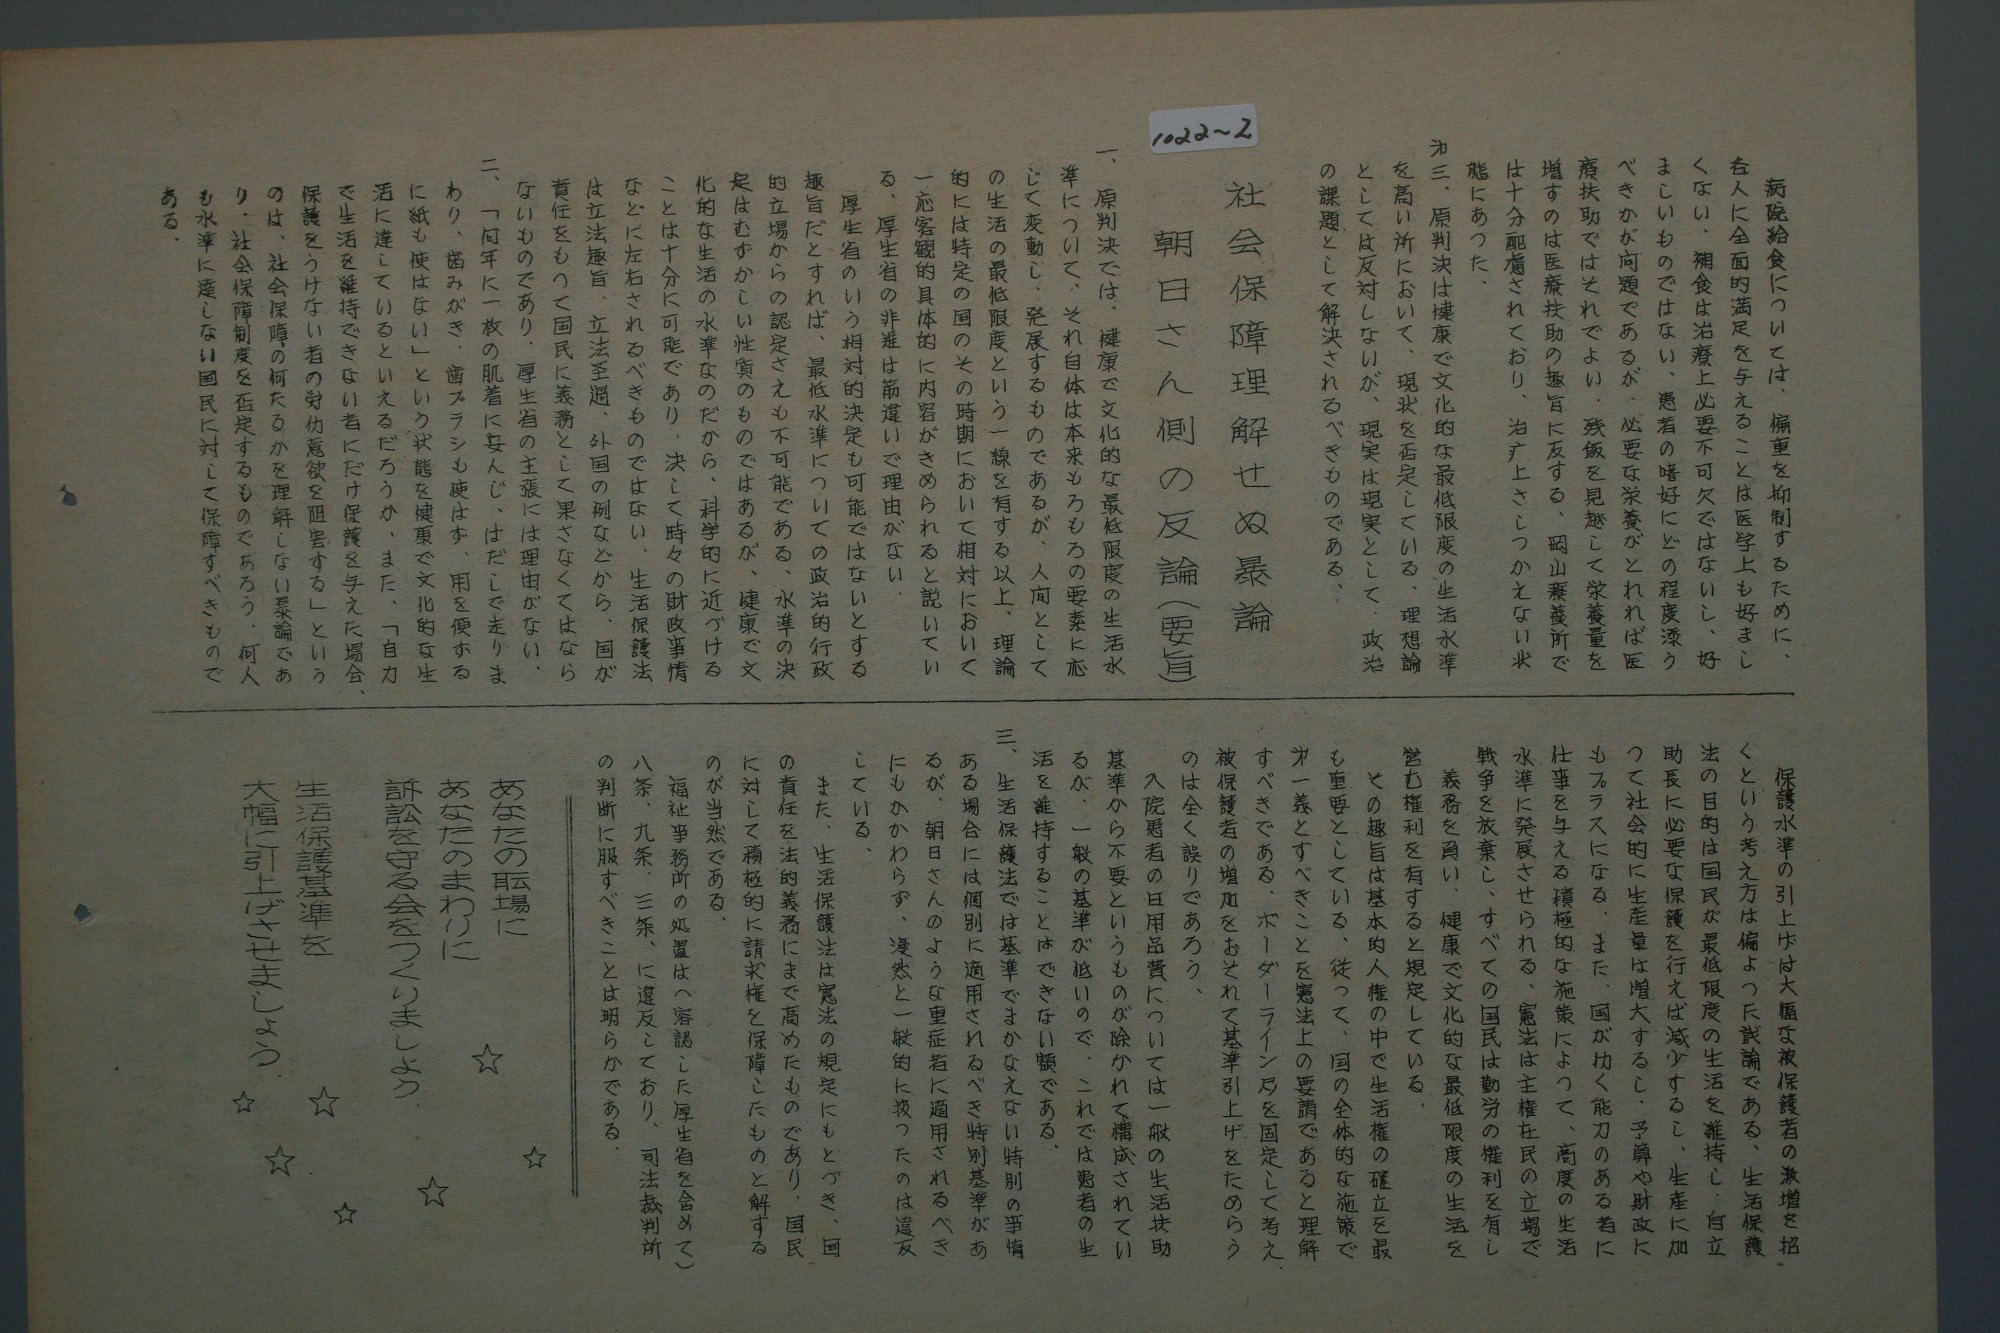 1022~2
病院給食については、偏重を抑制するために、
各人に全面的満足を与えることは医学上も好まし
くない、補食は治療上必要不可欠ではないし、好
ましいものではない、患者の嗜好にどの程度添う
べきかが问題であるが、必要な栄養がとれれば医
療扶助ではそれでよい。残飯を見越して栄養量を
増すのは医療扶助の趣旨に反する、岡山療養所で
は十分配慮されており、治疗上さしつかえない状
態にあった、
㐧三、原判決は健康で文化的な最低限度の生活水準
を高い所において、現状を否定している、理想論
としては反対しないが、現実は現実として、政治
の課題として解決されるべきものである、
社会保障理解せぬ暴論
朝日さん側の反論(要旨)
一、原判決では、健康で文化的な最低限度の生活水
準について、それ自体は本来もろもろの要素に応
じて変動し、発展するものであるが、人间として
の生活の最低限度という一線を有する以上、理論
的には特定の国のその時期において相対において
一応客観的具体的に内容がきめられると説いてい
る、厚生省の非難は筋違いで理由がない、
厚生省のいう相対的決定も可能ではないとする
趣旨だとすれば、最低水準についての政治的行政
的立場からの認定さえも不可能である、水準の決
定はむずかしい性質のものではあるが、健康で文
化的な生活の水準なのだから、科学的に近づける
ことは十分に可能であり、決して時々の財政事情
などに左右されるべきものではない、生活保護法
は立法趣旨、立法圣過、外国の例などから、国が
責任をもって国民に義務として果さなくてはなら
ないものであり、厚生省の主張には理由がない、
二、「何年に一枚の肌着に妥んじ、はだしで走りま
わり、歯みがき、歯ブラシも使はず、用を便する
に紙も使はない」という状態を健康で文化的な生
活に達しているといえるだろうか、また、「自力
で生活を維持できない者にだけ保護を与えた場合、
保護をうけない者の労仂意欲を阻害する」という
のは、社会保障の何たるかを理解しない暴論であ
り、社会保障制度を否定するものであろう、何人
も水準に達しない国民に対して保障すべきもので
ある、
保護水準の引上げは大幅な被保護者の激増を招
くという考え方は偏よった試論である、生活保護
法の目的は国民が最低限度の生活を維持し、自立
助長に必要な保護を行えば減少するし、生産に加
って社会的に生産量は増大するし、予算や財政に
もプラスになる、また、国が仂く能力のある者に
仕事を与える積極的な施策によって、高度の生活
水準に発展させられる、憲法は主権在民の立場で
戦争を放棄し、すべての国民は勤労の権利を有し
義務を負い、健康で文化的な最低限度の生活を
営む権利を有すると規定している、
その趣旨は基本的人権の中で生活権の確立を最
も重要としている、従って、国の全体的な施策で
㐧一義とすべきことを憲法上の要請であると理解
すべきである、ボーダーライン层を固定して考え、
被保護者の増加をおそれて基準引上げをためらう
のは全く誤りであろう、
入院患者の日用品費については一般の生活扶助
基準から不要というものが除かれて構成されてい
るが、一般の基準が低いので、これでは患者の生
活を維持することはできない額である、
三、生活保護法では基準でまかなえない特別の事情
ある場合には個別に適用されるべき特別基準があ
るが、朝日さんのような重症者に適用されるべき
にもかかわらず、漫然と一般的に扱ったのは違反
している、
また、生活保護法は憲法の規定にもとづき、国
の責任を法的義務にまで高めたものであり、国民
に対して積極的に請求権を保障したものと解する
のが当然である、
福祉事務所の処置は(容認した厚生省を含めて)
八条、九条、三条、に違反しており、司法裁判所
の判断に服すべきことは明らかである、
あなたの职場に
あなたのまわりに
訴訟を守る会をつくりましょう、
生活保護基準を
大幅に引上げさせましょう、